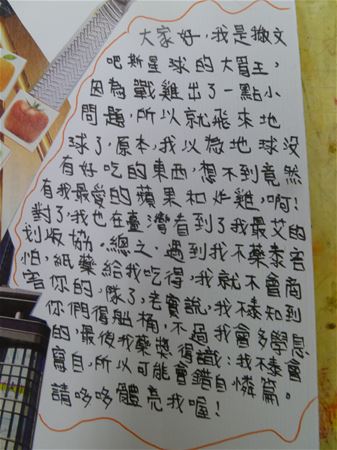 大家好,我是撒文
吧斯星球的大冒王,
因為戰雞出了一點小
問題,所以就飛來地
球了,原本,我以為地球沒
有好吃的東西,想不到竟然
有我最愛的蘋果和炸雞,啊!
對了,我也在臺灣看到了我最艾的
划版協。總之,遇到我不藥泰害
怕,紙藥給我吃得,我就不會商
害你的,隊了,老實說,我不泰知到
你們得桶,不過我會多學息
的,最後我藥獎得議:我不泰會
寫自,所以可能會錯自憐篇。
請哆哆體亮我喔!